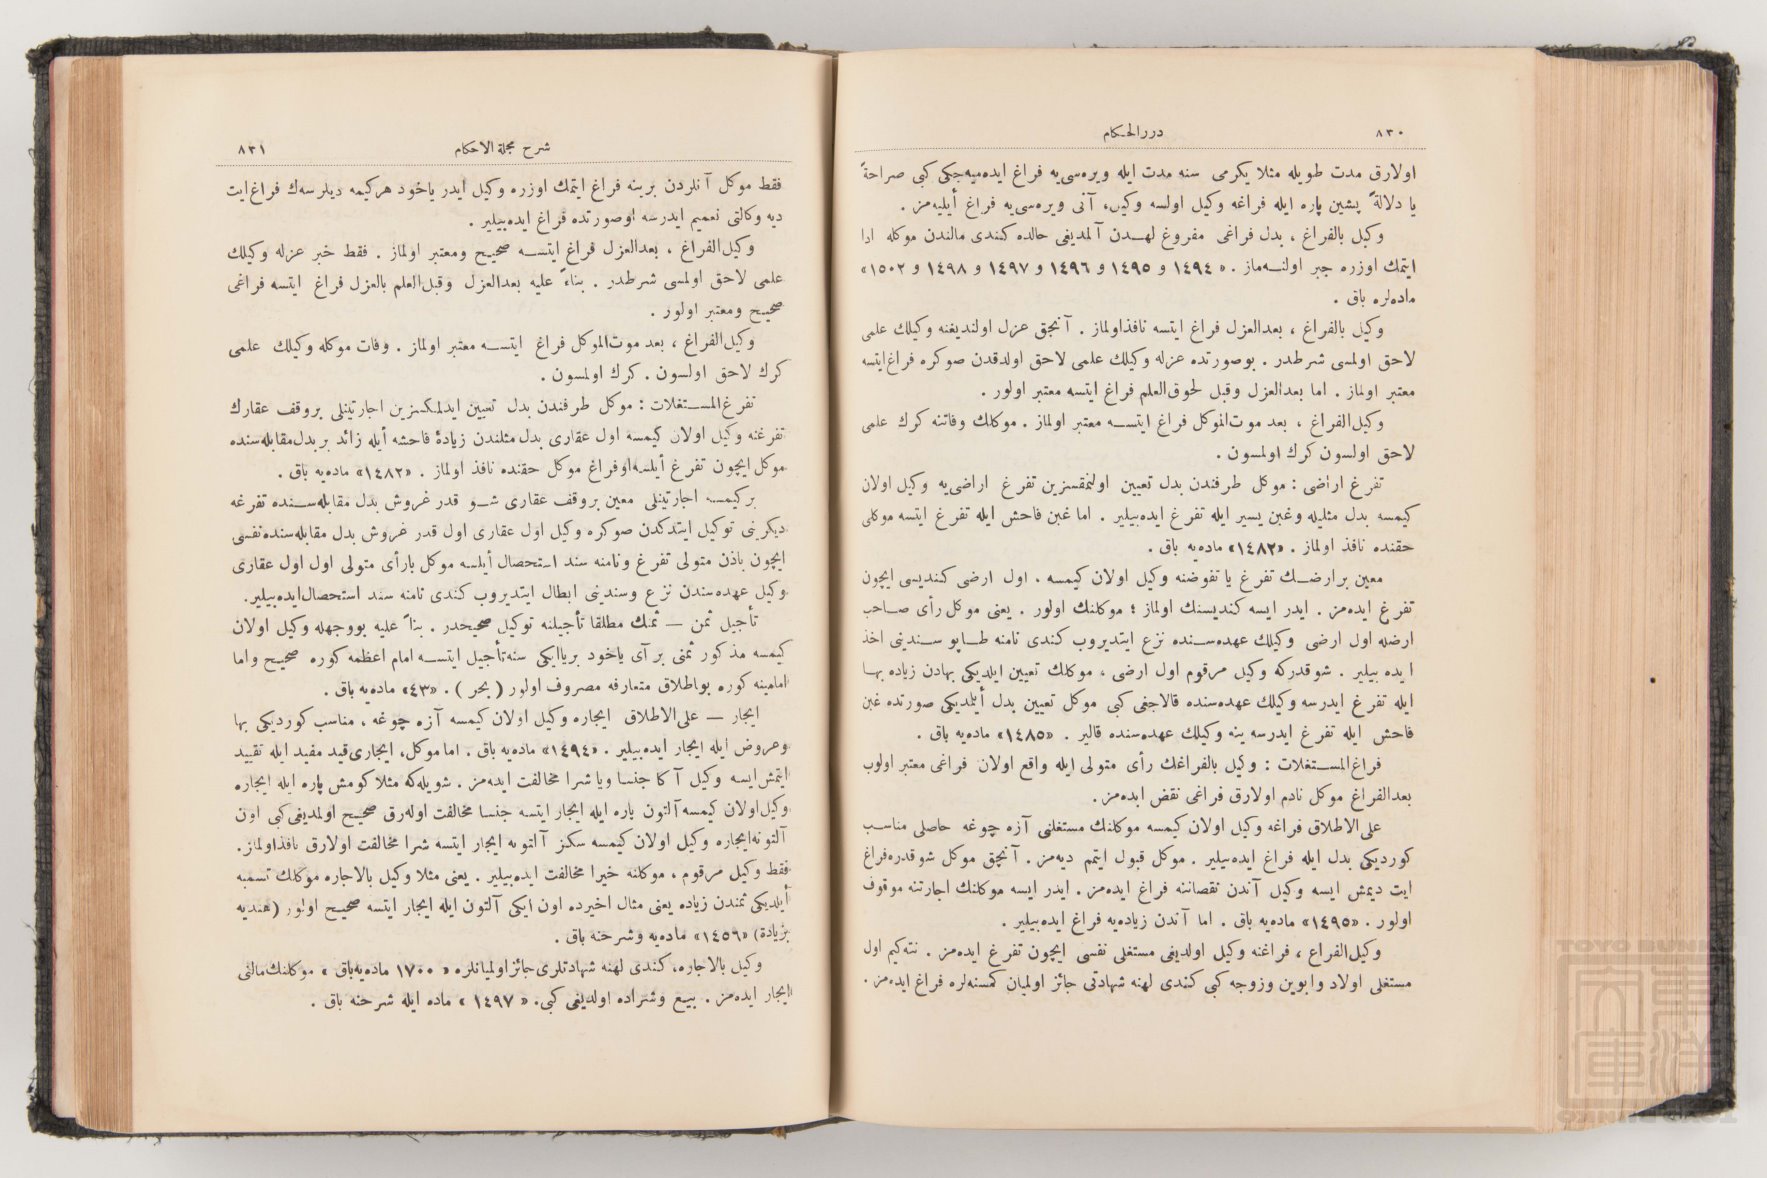 ٨٣٠
دررالحكام
اولارق مدت طويله مثلا يكرمى سنه مدت ايله ويره‌سى‌يه فراغ ايده‌ميه‌جكى كبى صراحةً
يا دلالةً پشين پاره ايله فراغه وكيل اولسه وكيل، آنى ويره‌سى‌يه فراغ أيليه‌مز .
وكيل بالفراغ ، بدل فراغى مفروغ لهـدن آلمديغى حالده كندى مالندن موكله ادا
ايتمك اوزره جبر اولنـه‌ماز . « ١٤٩٤ و ١٤٩٥ و ١٤٩٦ و ١٤٩٧ و ١٤٩٨ و ١٥٠٢»
ماده‌لره باق .
وكيل بالفراغ ، بعدالعزل فراغ ايتسه نافذاولماز . آنجق عزل اولنديغنه وكيلك علمى
لاحق اولمسى شرطدر . بوصورتده عزله وكيلك علمى لاحق اولدقدن صوكره فراغ‌ايتسه
معتبر اولماز . اما بعدالعزل وقبل لحوق‌العلم فراغ ايتسه معتبر اولور .
وكيل‌الفراغ ، بعد موت‌الموكل فراغ ايتسـه معتبر اولماز . موكلك وفاتنه كرك علمى
لاحق اولسون كرك اولمسون .
تفرغ اراضى : موكل طرفندن بدل تعيين اولنمقسزين تفرغ اراضى‌يه وكيل اولان
كيمسه بدل مثليله وغبن يسير ايله تفرغ ايده‌بيلير . اما غبن فاحش ايله تفرغ ايتسه موكلى
حقنده نافذ اولماز . «١٤٨٢» ماده‌يه باق .
معين برارضـك تفرغ يا تفوضنه وكيل اولان كيمسه ، اول ارضى كنديسى ايچون
تفرغ ايده‌مز . ايدر ايسه كنديسنك اولماز ؛ موكلنك اولور . يعنى موكل رأى صـاحب
ارضله اول ارضى وكيلك عهده‌سـنده نزع ايتديروب كندى نامنه طـاپو سـندينى اخذ
ايده بيلير . شوقدركه وكيل مرقوم اول ارضى ، موكلك تعيين ايلديكى بهادن زياده بهـا
ايله تفرغ ايدرسه وكيلك عهده‌سنده قالاجغى كبى موكل تعيين بدل أيلمديكى صورتده غبن
فاحش ايله تفرغ ايدرسه ينه وكيلك عهده‌سنده قالير . «١٤٨٥» ماده‌يه باق .
فراغ‌المسـتغلات : وكيل بالفراغك رأى متولى ايله واقع اولان فراغى معتبر اولوب
بعدالفراغ موكل نادم اولارق فراغى نقض ايده‌مز .
على‌الاطلاق فراغه وكيل اولان كيمسه موكلنك مستغلنى آزه چوغه حاصلى مناسـب
كورديكى بدل ايله فراغ ايده‌بيلير . موكل قبول ايتمم ديه‌مز . آنجق موكل شوقدره‌فراغ
ايت ديمش ايسه وكيل آندن نقصاننه فراغ ايده‌مز . ايدر ايسه موكلنك اجازتنه موقوف
اولور . «١٤٩٥» ماده‌يه باق . اما آندن زياده‌يه فراغ ايده‌بيلير .
وكيل‌الفراغ ، فراغنه وكيل اولديغى مستغلى نفسى ايچون تفرغ ايده‌مز . نته‌كيم اول
مستغلى اولاد وابوين وزوجه كبى كندى لهنه شهادتى جائز اولميان كمسنه‌لره فراغ ايده‌مز .
شرح مجلة الاحكام
٨٣١
فقط موكل آنلردن برينه فراغ ايتمك اوزره وكيل ايدر ياخود هركيمه ديلرسه‌ك فراغ‌ايت
ديه وكالتى تعميم ايدرسه اوصورتده فراغ ايده‌بيلير .
وكيل‌الفراغ ، بعدالعزل فراغ ايتسـه صحيح ومعتبر اولماز . فقط خبر عزله وكيلك
علمى لاحق اولمسى شرطدر . بناءً عليه بعدالعزل وقبل‌العلم بالعزل فراغ ايتسه فراغى
صحيح ومعتبر اولور .
وكيل‌الفراغ ، بعد موت‌الموكل فراغ ايتسـه معتبر اولماز . وفات موكله وكيلك علمى
كرك لاحق اولسون . كرك اولمسون .
تفرغ‌المسـتغلات : موكل طرفندن بدل تعيين ايدلمكسزين اجارتينلى بروقف عقارك
تفرغنه وكيل اولان كيمسه اول عقارى بدل مثلندن زيادهٔ فاحشه أيله زائد بربدل‌مقابله‌سنده
موكل ايچون تفرغ أيلسه‌اوفراغ موكل حقنده نافذ اولماز . «١٤٨٢» ماده‌يه باق .
بركيمسه اجارتينلى معين بروقف عقارى شـو قدر غروش بدل مقابله‌سـنده تفرغه
ديكرينى توكيل ايتدكدن صوكره وكيل اول عقارى اول قدر غروش بدل مقابله‌سنده‌نفسى
ايچون باذن متولى تفرغ ونامنه سند استحصال أيلسه موكل بارأى متولى اول اول عقارى
وكيل عهده‌سندن نزع وسندينى ابطال ايتديروب كندى نامنه سند استحصال‌ايده‌بيلير.
تأجيل ثمن — ثمنك مطلقا تأجيلنه توكيل صحيحدر . بناً عليه بووجهله وكيل اولان
كيمسه مذكور ثمنى برآى ياخود برياايكى سنه‌تأجيل ايتسـه امام اعظمه كوره صحيح واما
امامينه كوره بواطلاق متعارفه مصروف اولور ( بحر ) . «٤٣» ماده‌يه باق .
ايجار — على‌الاطلاق ايجاره وكيل اولان كيمسه آزه چوغه ، مناسب كورديكى بها
وعروض ايله ايجار ايده‌بيلير . «١٤٩٤» ماده‌يه باق . اماموكل، ايجارى‌قيد مفيد ايله تقييد
ايتمش‌ايسه وكيل آ كا جنسا ويا شرا مخالفت ايده‌مز . شويله‌كه مثلا كومش پاره ايله ايجاره
وكيل‌اولان كيمسه آلتون پاره ايله ايجار ايتسه جنسا مخالفت اوله‌رق صحيح اولمديغى‌كبى اون
آلتونه‌ايجاره وكيل اولان كيمسه سكز آلتونه ايجار ايتسه شرا مخالفت اولارق نافذاولماز.
فقط وكيل مرقوم ، موكلنه خيرا مخالفت ايده‌بيلير . يعنى مثلا وكيل بالاجاره موكلك تسميه
أيلديكى ثمندن زياده يعنى مثال اخيرده اون ايكى آلتون ايله ايجار ايتسه صحيح اولور (هنديه
بزيادة) «١٤٥٦» ماده‌يه وشرحنه باق .
وكيل بالاجاره، كندى لهنه شهادتلرى‌جائزاولميانلره « ١٧٠٠ ماده‌يه‌باق » موكلنك‌مالنى
ايجار ايده‌مز . بيع وشراده اولديغى كبى. « ١٤٩٧ » ماده ايله شرحنه باق .